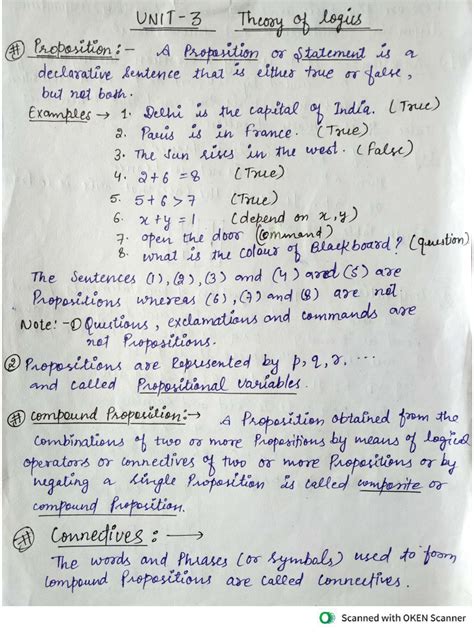 UNIT-3 Theory of logics
# Proposition :- A Proposition or Statement is a
declarative Sentence that is either true or false,
but not both.
Examples → 1. Delhi is the capital of India. (True)
2. Paris is in France. (True)
3. The Sun rises in the west. (False)
4. 2+6 = 8 (True)
5. 5+6 > 7 (True)
6. x+y = 1 (depend on x,y)
7. open the door (Command)
8. what is the colour of Blackboard? (question)
The Sentences (1), (2), (3) and (4) and (5) are
Propositions whereas (6), (7) and (8) are not.
Note: -① Questions, exclamations and commands are
not Propositions.
② Propositions are Represented by p, q, r, ...
and called Propositional variables.
# Compound Proposition:→ A Proposition obtained from the
Combinations of two or more Propositions by means of logical
operators or connectives of two or more Propositions or by
negating a Single Proposition is called composite or
compound Proposition.
# Connectives : →
The words and Phrases (or Symbols) used to form
Compound Propositions are called Connectives.
Scanned with OKEN Scanner